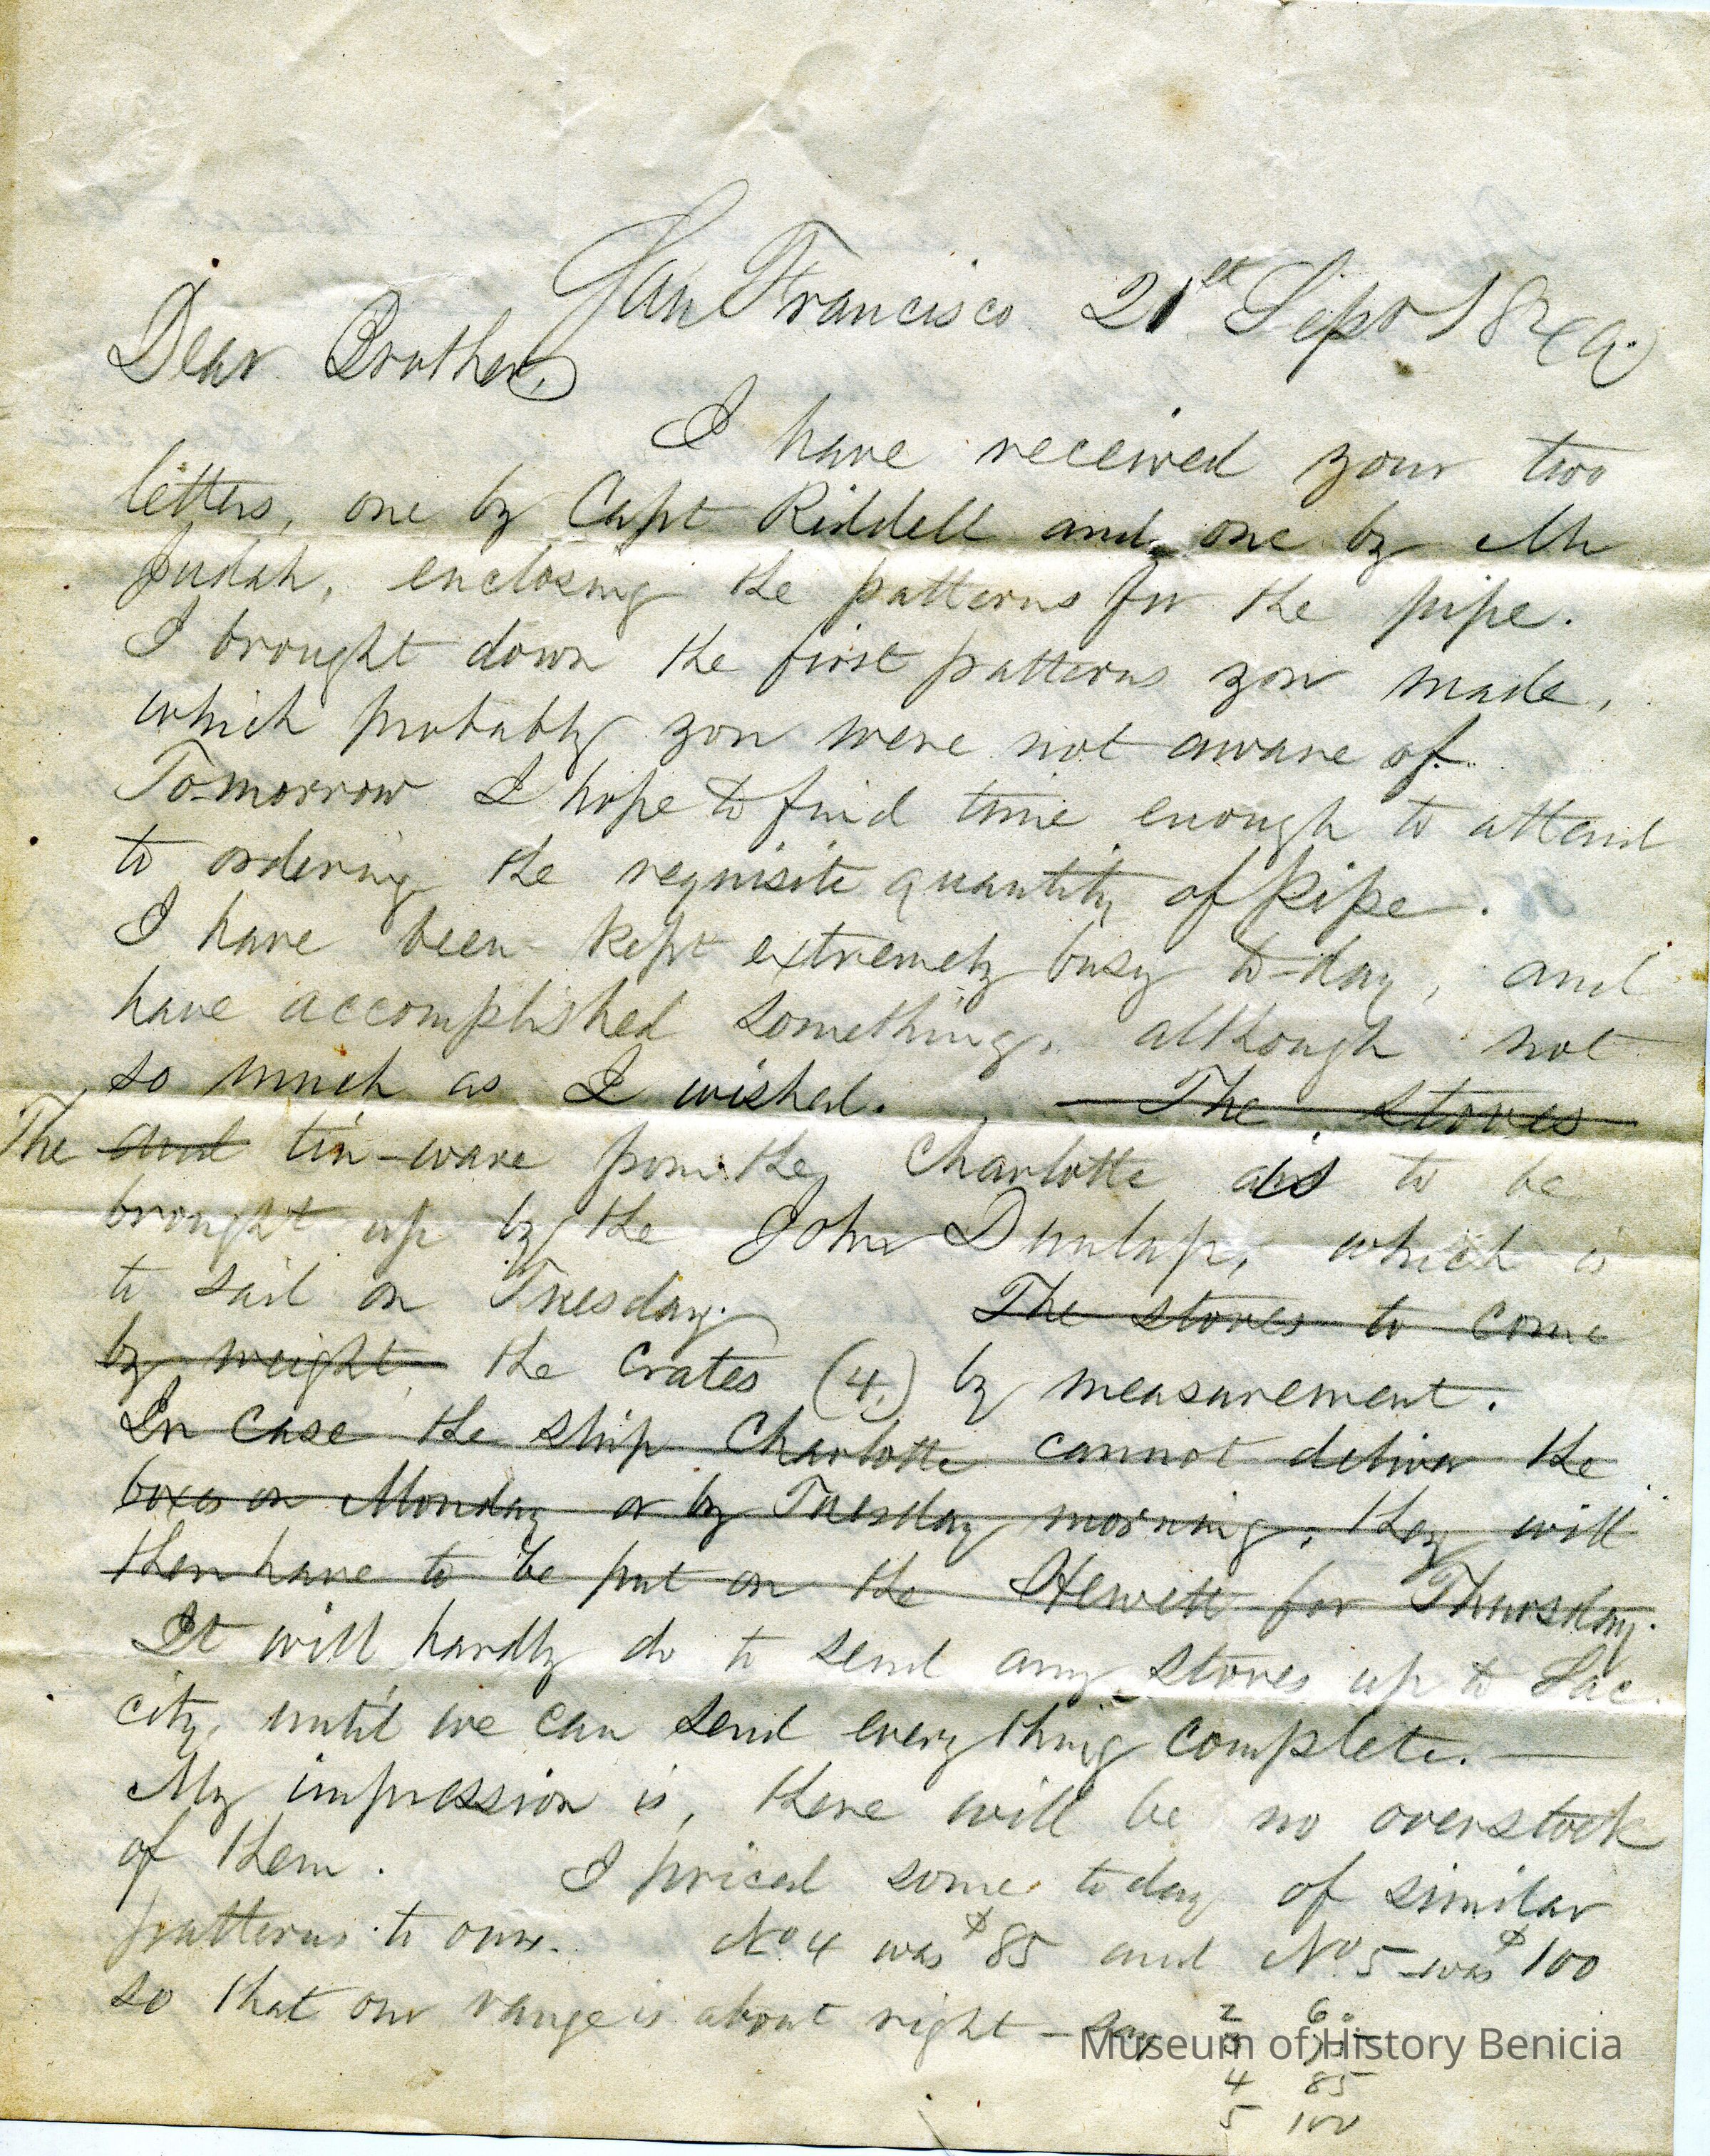 San Francisco 21st Sept 1849.
Dear Brother,
I have received your two
letters, one by Capt Riddell and one by Mr
Judah, enclosing the patterns for the pipe.
I brought down the first patterns you made,
which probably you were not aware of.
To-morrow I hope to find time enough to attend
to ordering the requisite quantity of pipe.
I have been kept extremely busy to-day, and
have accomplished something, although not
so much as I wished. The stoves
The and tin-ware from the Charlotte is to be
brought up by the John Dunlap, which is
to sail on Tuesday. The stoves to come
by weight, the crates (4.) by measurement.
In case the ship Charlotte cannot deliver the
boxes on Monday or by Tuesday morning, they will
then have to be put on the Hewett for Thursday.
It will hardly do to send any stoves up to Sac.
city, until we can send everything complete. —
My impression is, there will be no overstock
of them. I priced some to day of similar
patterns to ours. No 4 was $85 and No 5 was $100
so that our range is about right — say 2 60
3 75
4 85
5 100
Museum of History Benicia